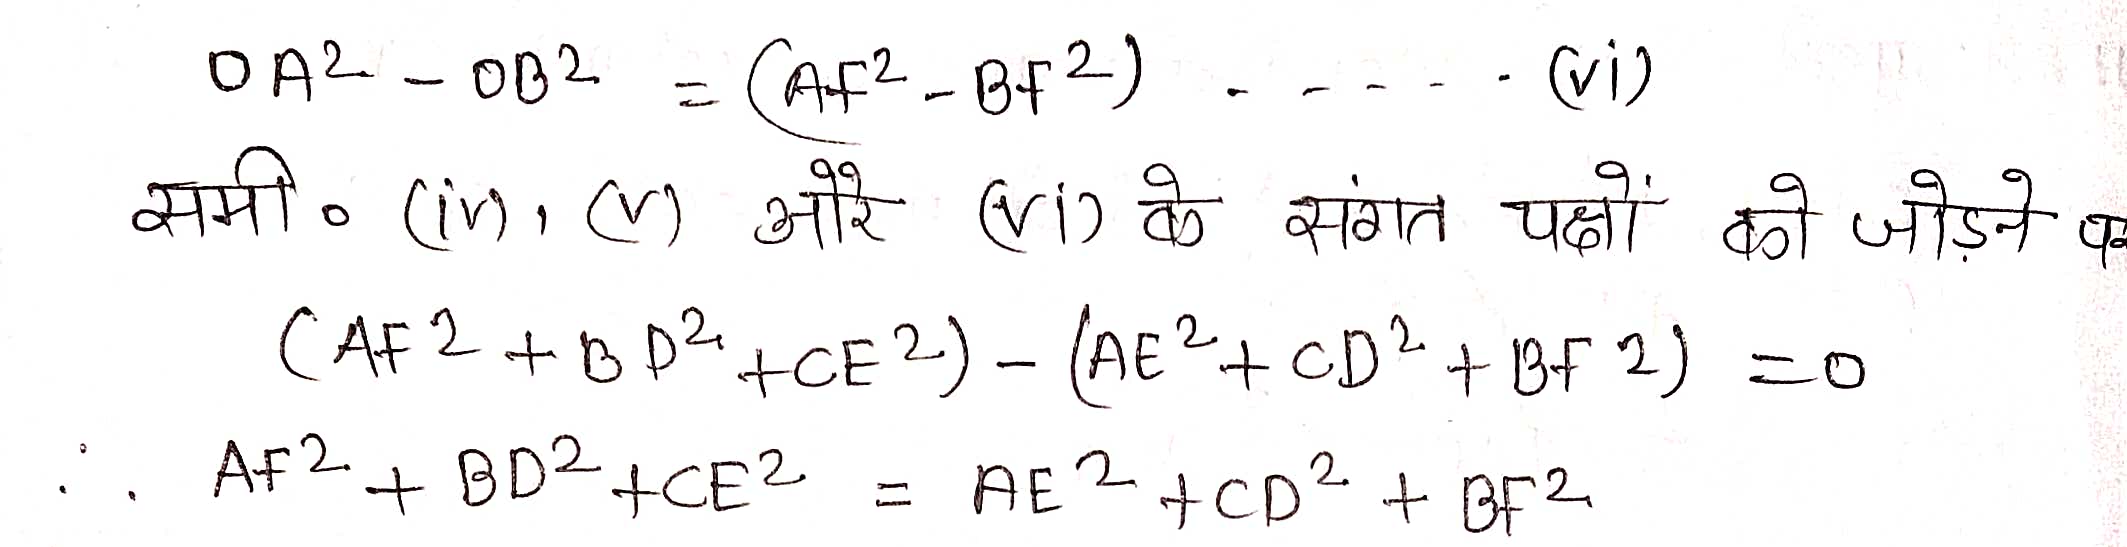 OA² - OB² = (AF² - BF²) - - - - - - (vi)
समी० (iv), (v) और (vi) के संगत पक्षों को जोड़ने पर
(AF² + BD² + CE²) - (AE² + CD² + BF²) = 0
∴ AF² + BD² + CE² = AE² + CD² + BF²